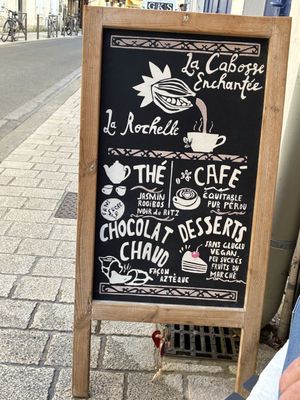 La Cabosse
Enchantée
La Rochelle
THÉ
JASMIN
ROOIBOS
NOIR DU RITZ
CAFÉ
ÉQUITABLE
PUR PÉROU
CHOCOLAT
CHAUD
FAÇON
AZTÈQUE
DESSERTS
SANS GLUTEN
VEGAN
PEU SUCRÉS
FRUITS DU
MARCHÉ